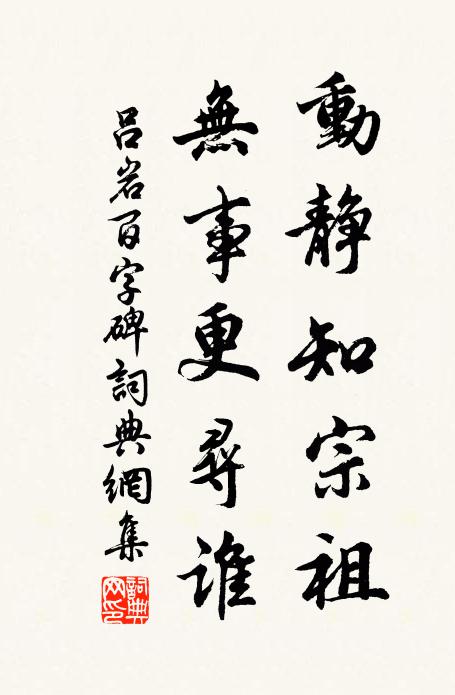 動靜知宗祖
無事更尋誰
呂岩百字碑詞典網集
詞典网印